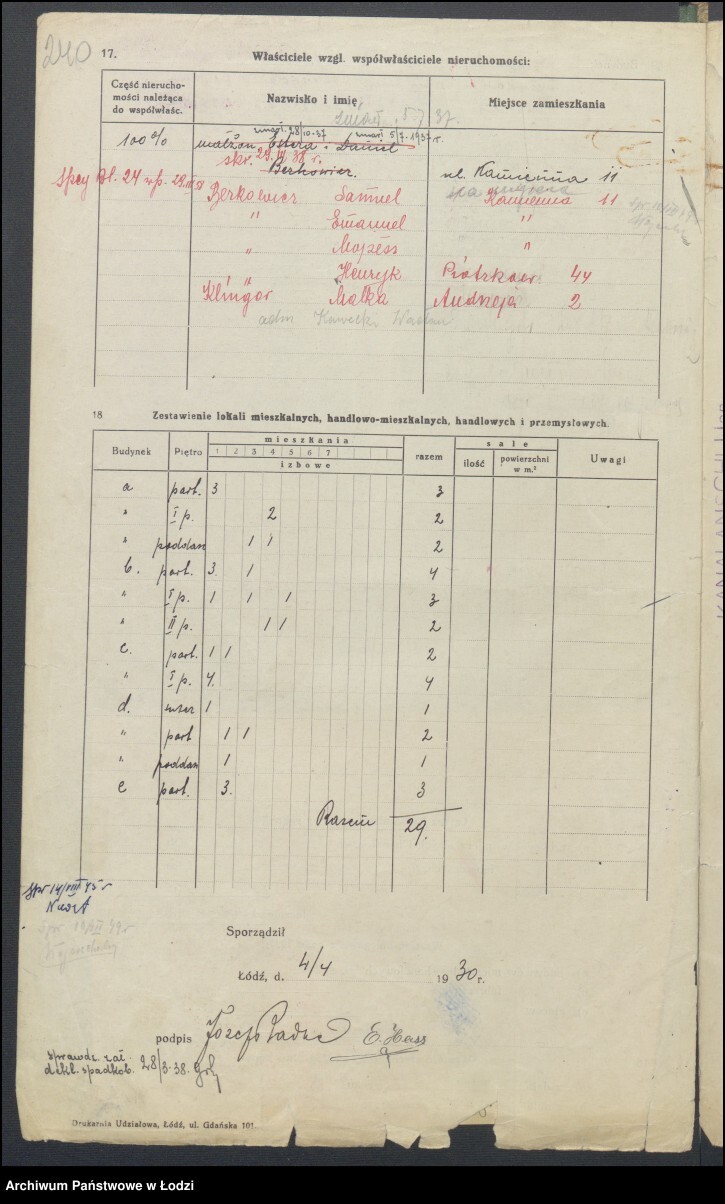 240
17.
Właściciele wzgl. współwłaściciele nieruchomości:
Część nierucho-
mości należąca
do współwłaśc.
Nazwisko i imię
Miejsce zamieszkania
zmarł. 5.7.37.
zmarł. 28/10-37 zmarł. 5/7.1937 r.
100% małżon. Estera i Daniel
Berkowicz. ul. Kamienna 11
Berkowicz Samuel Kamienna 11
" Emanuel "
" Mojżesz "
" Henryk Piotrkow. 44
Klingor Malka Andrzeja 2
adm Kawecki Wacław
18 Zestawienie lokali mieszkalnych, handlowo-mieszkalnych, handlowych i przemysłowych.
Budynek Piętro mieszkania razem sale Uwagi
1 2 3 4 5 6 7
izbowe
ilość powierzchni w m.²
a part. 3 3
" I p. 2 2
" poddasz 1 1 2
b. part. 3. 1 4
" I p. 1 1 1 3
" II p. 1 1 2
c. part. 1 1 2
" I p. 4. 4
d. suter 1 1
" part 1 1 2
" poddasz 1 1
e part. 3. 3
Razem 29.
Spr 14/VIII 45 r
Sporządził
Łódź, d. 4/4 1930 r.
podpis E. Hass
sprawdz. zał.
dekl. spadkob. 28/3.38.
Drukarnia Udziałowa, Łódź, ul. Gdańska 101.
Archiwum Państwowe w Łodzi